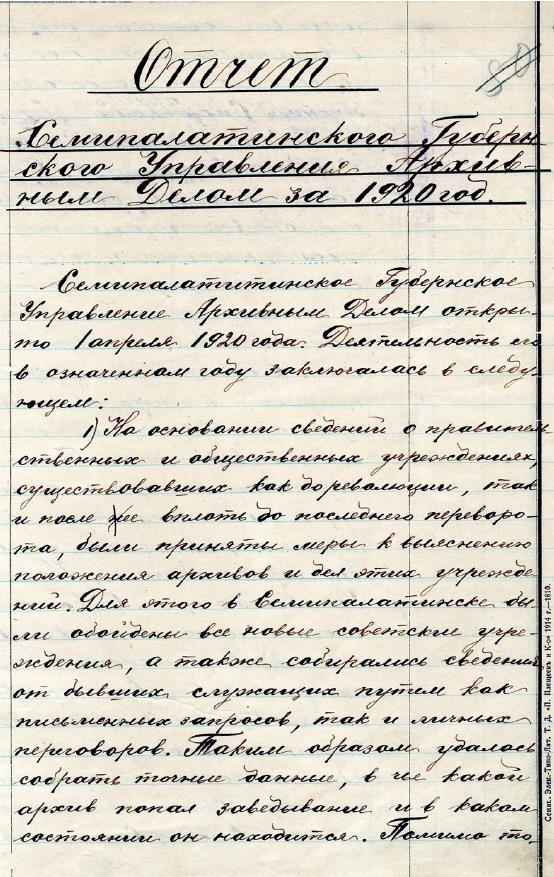 80
Отчет
Семипалатинского Губерн
ского Управления Архив-
ным Делом за 1920 год.
Семипалатитинское Губернское
Управление Архивным Делом откры-
то 1 апреля 1920 года. Деятельность его
в означенном году заключалась в следу-
ющем:
1) На основании сведений о правитель
ственных и общественных учреждениях,
существовавших как до революции, так
и после нее вплоть до последнего переворо-
та, были приняты меры к выяснению
положения архивов и дел этих учрежде-
ний. Для этого в Семипалатинске бы-
ли обойдены все новые советские учре-
ждения, а также собирались сведения
от бывших служащих путем как
письменных запросов, так и личных
переговоров. Таким образом удалось
собрать точные данные, в чье какой
архив попал заведывание и в каком
состоянии он находится. Помимо то-
Семип. Элек.-Типо-Лит. Т. Д. „П. Плещеевъ и К-о" 1914 г.—1810.